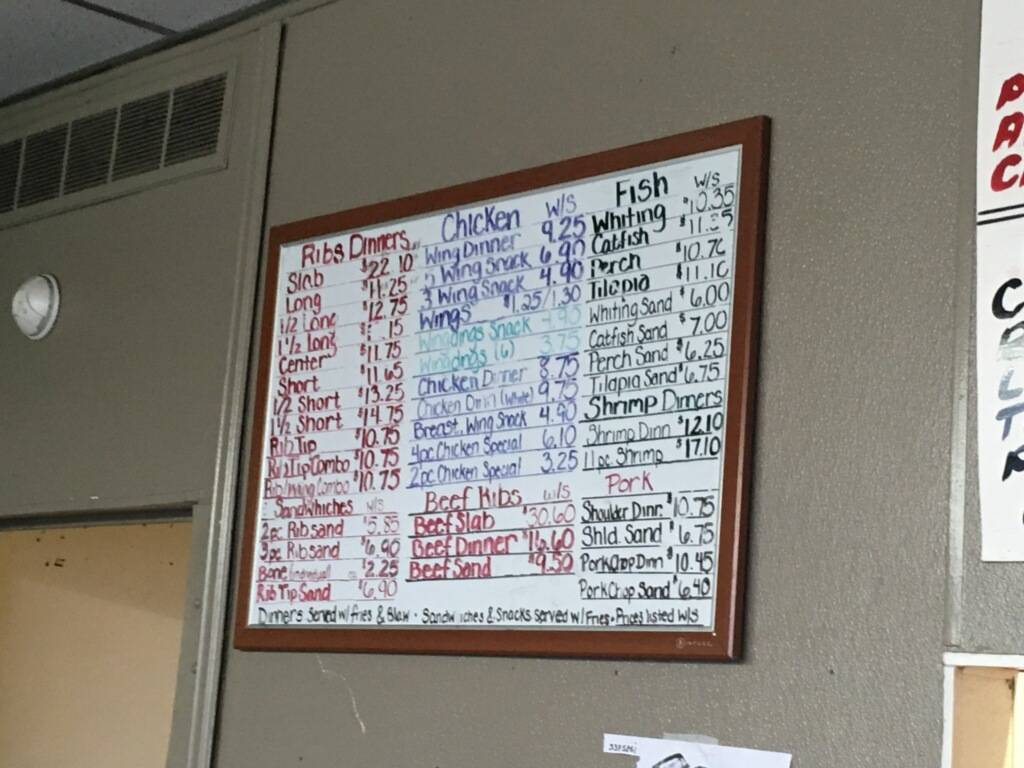 Ribs Dinners
Slab $22.10
Long $11.25
1/2 Long $12.75
1 1/2 Long 15
Center $11.75
Short $11.65
1/2 Short $13.25
1 1/2 Short $14.75
Rib Tip $10.75
Rib Tip Combo $10.75
Rib/Wing Combo $10.75
Sandwhiches w/s
2pc Rib sand $5.85
3pc Rib sand $6.90
Bone $2.25
Rib Tip Sand $6.90
Chicken w/s
Wing Dinner 9.25
Wing Snack 6.90
3 Wing Snack 4.90
Wings $1.25/1.30
Wingdings Snack 4.90
Wingdings (6) 3.75
Chicken Dinner 8.75
Chicken Dinn (White) 9.75
Breast, Wing Snack 4.90
4pc Chicken Special 6.10
2pc Chicken Special 3.25
Beef Ribs w/s
Beef Slab $30.60
Beef Dinner $16.60
Beef Sand $9.50
Fish w/s
Whiting $10.35
Catfish
Perch $10.70
Tilapia $11.10
Whiting Sand $6.00
Catfish Sand $7.00
Perch Sand $6.25
Tilapia Sand $6.75
Shrimp Dinners
Shrimp Dinn $12.10
11pc Shrimp $17.10
Pork
Shoulder Dinn $10.75
Shld. Sand $6.75
Pork Chop Dinn $10.45
Pork Chop Sand $6.40
Dinners Served w/ Fries & Slaw • Sandwiches & Snacks served w/ Fries • Prices listed w/s